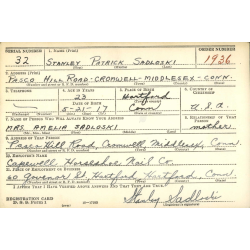 SERIAL NUMBER 1. NAME (Print) ORDER NUMBER
32 STANLEY PATRICK SADLOSKI 1936
2. ADDRESS (Print)
PASCO HILL ROAD - CROMWELL - MIDDLESEX - CONN.
3. TELEPHONE 4. AGE IN YEARS 5. PLACE OF BIRTH 6. COUNTRY OF CITIZENSHIP
23 Hartford
DATE OF BIRTH
5-21-17 Conn U.S.A.
7. NAME OF PERSON WHO WILL ALWAYS KNOW YOUR ADDRESS 8. RELATIONSHIP OF THAT PERSON
MRS. AMELIA SADLOSKI mother
9. ADDRESS OF THAT PERSON
Pasco Hill Road, Cromwell, Middlesex, Conn.
10. EMPLOYER'S NAME
Capewell Horseshoe Nail Co.
11. PLACE OF EMPLOYMENT OR BUSINESS
60 Governor St Hartford, Hartford, Conn.
I AFFIRM THAT I HAVE VERIFIED ABOVE ANSWERS AND THAT THEY ARE TRUE.
REGISTRATION CARD
D. S. S. FORM 1 Stanley Sadloski